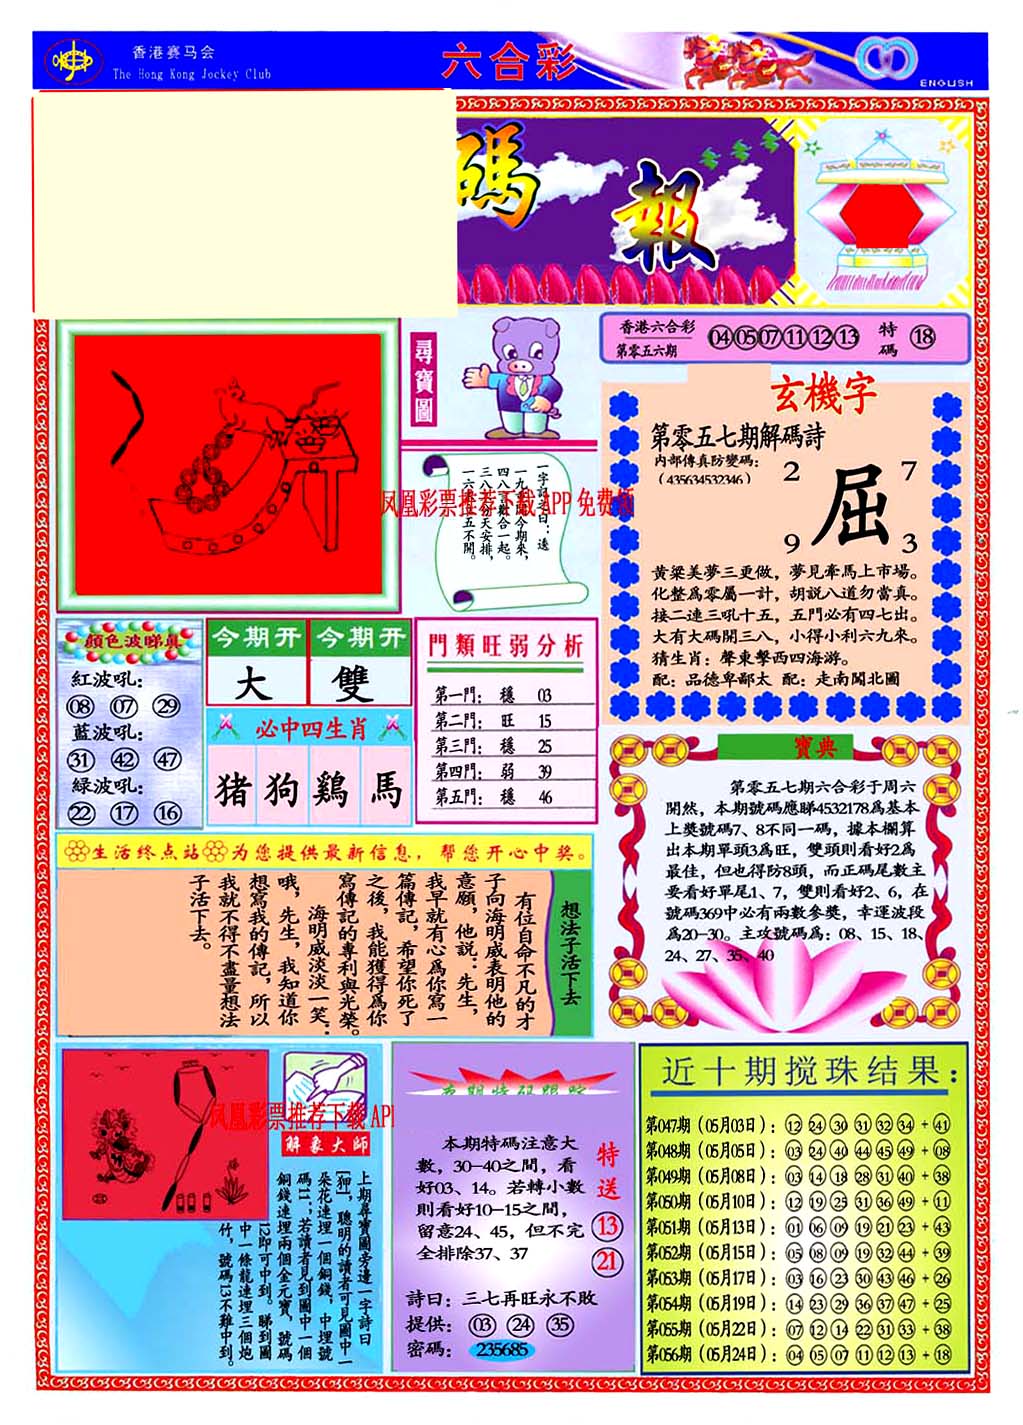 香港赛马会
The Hong Kong Jockey Club
六合彩
ENGLISH
碼報
尋寶圖
香港六合彩
第零五六期
04 05 07 11 12 13
特碼
18
玄機字
第零五七期解碼詩
内部傳真防變碼：
（435634532346）
2 7
屈
9 3
黄粱美夢三更做，夢見牽馬上市場。
化整爲零屬一計，胡説八道勿當真。
接二連三吼十五，五門必有四七出。
大有大碼開三八，小得小利六九來。
猜生肖：聲東擊西四海游。
配：品德卑鄙太 配：走南闖北圖
一字詩曰：逃
今期來，
四八 合一起。
三八 份天安排，
一六 五不開。
凤凰彩票推荐下载 APP 免费领
顔色波睇真
紅波吼：
08 07 29
藍波吼：
31 42 47
緑波吼：
22 17 16
今期开
大
今期开
雙
必中四生肖
猪 狗 鷄 馬
門類旺弱分析
第一門： 穩 03
第二門： 旺 15
第三門： 穩 25
第四門： 弱 39
第五門： 穩 46
寶典
第零五七期六合彩于周六
開然，本期號碼應睇4532178爲基本
上獎號碼7、8不同一碼，據本欄算
出本期單頭3爲旺，雙頭則看好2爲
最佳，但也得防8頭，而正碼尾數主
要看好單尾1、7，雙則看好2、6，在
號碼369中必有兩數參獎，幸運波段
爲20–30。主攻號碼爲：08、15、18、
24、27、35、40
生活终点站 为您提供最新信息，帮您开心中奖。
想法子活下去
有位自命不凡的才
子向海明威表明他的
意願，他説：先生，
我早就有心爲你寫一
篇傳記，希望你死了
之後，我能獲得爲你
寫傳記的專利與光榮。
海明威淡淡一笑：
哦，先生，我知道你
想寫我的傳記，所以
我就不得不盡量想法
子活下去。
凤凰彩票推荐下载 API
解象大師
上期尋寶圖旁邊一字詩曰
[狎]，聰明的讀者可見圖中一
朵花連埋一個銅錢，中埋號
碼11，若讀者見到圖中一個
銅錢連埋兩個金元寶，號碼
12即可中到。睇到圖
中一條龍連埋三個炮
竹，號碼13不難中到。
本期特码跟踪
本期特碼注意大
數，30–40之間，看
好03、14。若轉小數
則看好10–15之間，
留意24、45，但不完
全排除37、37
特送
13
21
詩曰：三七再旺永不敗
提供： 03 24 35
密碼： 235685
近十期搅珠结果：
第047期（05月03日）：12 24 30 31 32 34 + 41
第048期（05月05日）：03 24 40 44 45 49 + 08
第049期（05月08日）：03 14 18 28 31 40 + 38
第050期（05月10日）：12 19 25 31 36 49 + 11
第051期（05月13日）：01 06 09 19 21 23 + 43
第052期（05月15日）：05 08 09 19 32 44 + 39
第053期（05月17日）：03 16 23 30 43 46 + 26
第054期（05月19日）：14 23 29 36 37 47 + 25
第055期（05月22日）：07 12 14 22 31 33 + 38
第056期（05月24日）：04 05 07 11 12 13 + 18